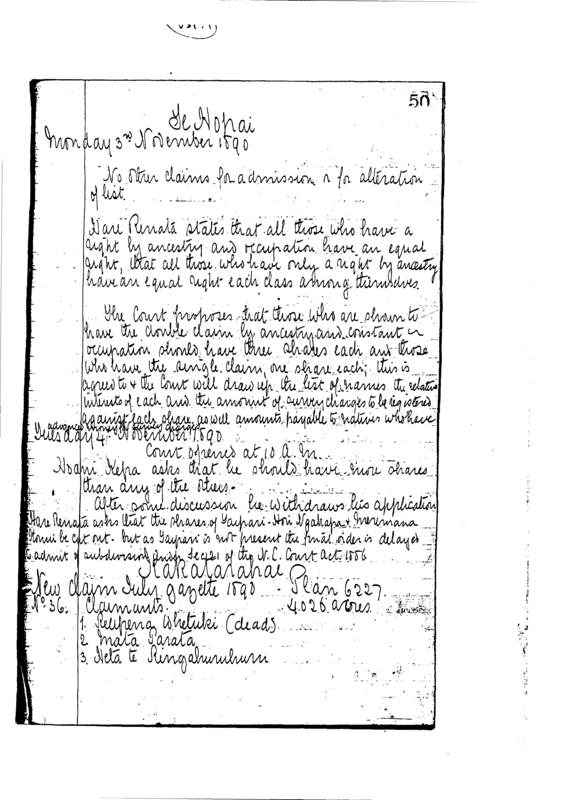 50
Te Hopai
Monday 3rd November 1890
No other claims for admission or for alteration
of list.
Hare Renata states that all those who have a
right by ancestry and occupation have an equal
right, that all those who have only a right by ancestry
have an equal right each class among themselves.
The Court proposes that those who are shown to
have the double claim by ancestry and constant
occupation should have three shares each and those
who have the single claim, one share each; this is
agreed to & the Court will draw up the list of names the relative
interests of each and the amount of survey charges to be registered
against each share as well amounts payable to natives who have
advanced money to survey charges
Tuesday 4th November 1890
Court opened at 10 A.M.
Hoani Kepa asks that he should have more shares
than any of the others.
After some discussion he withdraws his application
Hare Renata asks that the shares of Taipari Hori Ngakapa &
be cut out. but as Taipari is not present the final order is delayed
to admit of subdivision under Sec 21 of the N.C. Court Act 1886
New Claim July gazette 1890 - Plan 6227.
No 36. Claimants. 4026 acres
1. Whetuki (dead)
2. Mata Parata
3. te